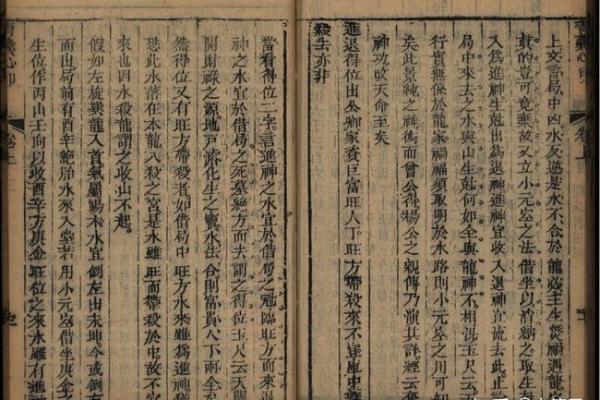 上文言局中凶水反逆是水不合於龍必主生災禍遇龍
貴的豈可棄故又立小元空之法借坐以消納之取生
入為進神生尅出為退神進神宜收入退神宜流去此言
局中來去之水與山生尅何如全與龍神不相涉玉尺云
行實無係於龍家禍福須取明於水路則小元空之用可知
矣此景純之神術而曾公得楊公之親傳乃演其詳經云奪
神功改天命至矣
進退得位出公卿家資巨富旺人丁旺方帶殺來不是庫中
殺去亦非
當看得位二字言進神之水宜於借局之冠臨旺方而來退
神之水宜於借局之死墓絶方而去謂之得位玉尺云天門
開財祿之源地戶濬化生之竇水法合則富貴人丁兩全
然得位又有旺方帶殺者如借局中旺方水來雖為進神猶
恐此水落在本龍入殺之宮是水雖旺而帶殺於中故不
來也因水殺龍謂之收山不起
假如左旋巽龍入首氣屬陽木水宜倒左出未坤今或倒右
而出局前有酉辛絶胎水來入堂若用小元空借坐庚金
生位作丙山壬向以收酉辛方庚金旺位之來水雖有進